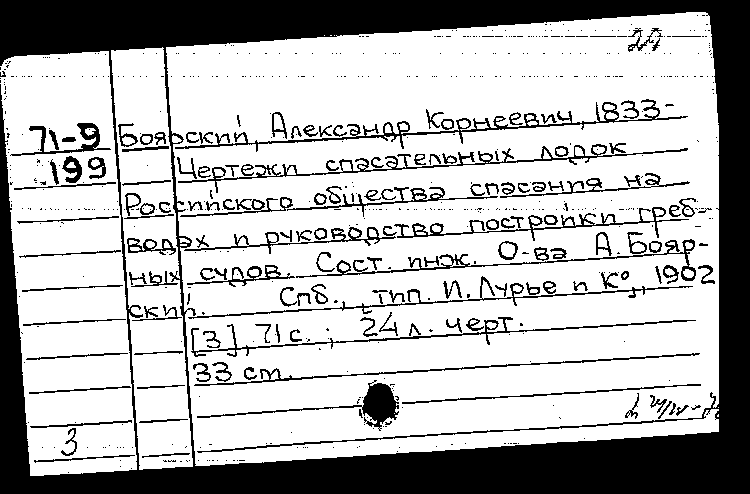 71-9 Боярский, Александр Корнеевич, 1833-
199 Чертежи спасательных лодок
Российского общества спасания на
водах и руководство постройки греб-
ных судов. Сост. инж. О-ва А. Бояр-
ский. Спб., тип. И. Лурье и К°, 1902
[3], 71 с.; 24 л. черт.
33 см.
3